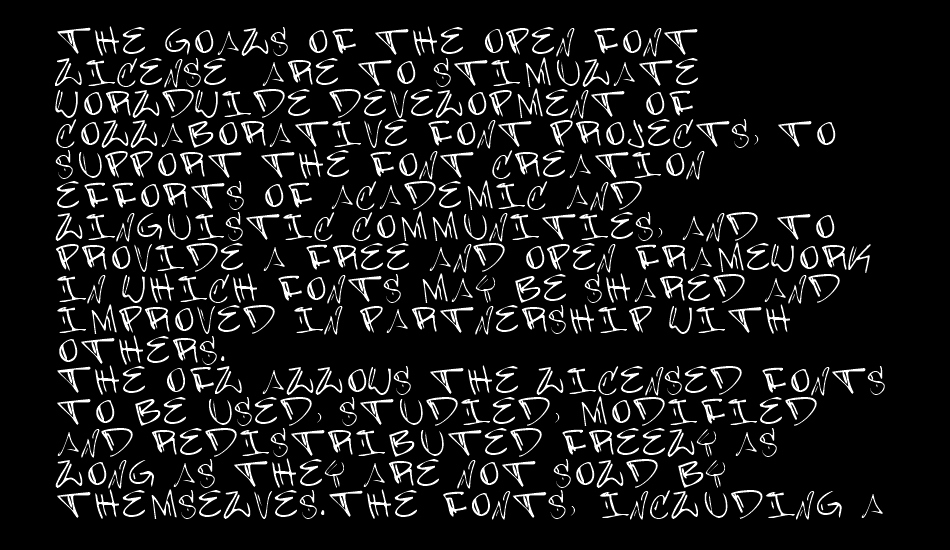 THE GOALS OF THE OPEN FONT
LICENSE ARE TO STIMULATE
WORLDWIDE DEVELOPMENT OF
COLLABORATIVE FONT PROJECTS, TO
SUPPORT THE FONT CREATION
EFFORTS OF ACADEMIC AND
LINGUISTIC COMMUNITIES, AND TO
PROVIDE A FREE AND OPEN FRAMEWORK
IN WHICH FONTS MAY BE SHARED AND
IMPROVED IN PARTNERSHIP WITH
OTHERS.
THE OFL ALLOWS THE LICENSED FONTS
TO BE USED, STUDIED, MODIFIED
AND REDISTRIBUTED FREELY AS
LONG AS THEY ARE NOT SOLD BY
THEMSELVES.THE FONTS, INCLUDING A